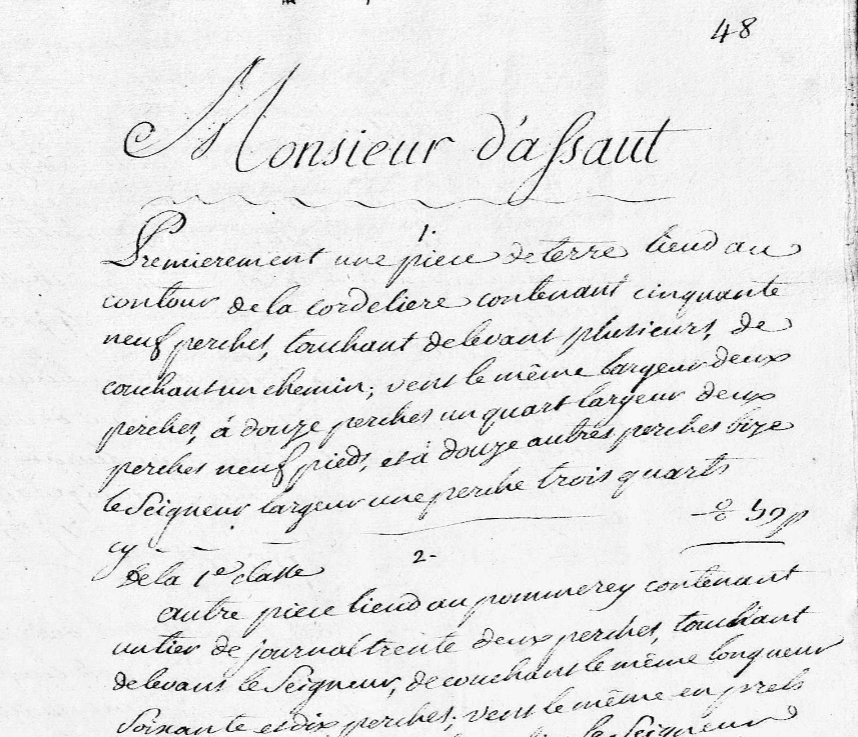 48
Monsieur d'assaut
1.
Premierement une piece de terre lieud au
contour de la cordeliere contenant cinquante
neuf perches, touchant de levant plusieurs, de
couchant un chemin; vent le même largeur deux
perches, à douze perches un quart largeur deux
perches neuf pieds, et à douze autres perches bize
le Seigneur largeur une perche trois quarts
cy - - - 59 p
de la 1e classe
2-
autre piece lieud au pommerey contenant
un tier de journal trente deux perches, touchant
de levant le Seigneur, de couchant le même longueur
soixante et dix perches; vent le même en prels
le Seigneur